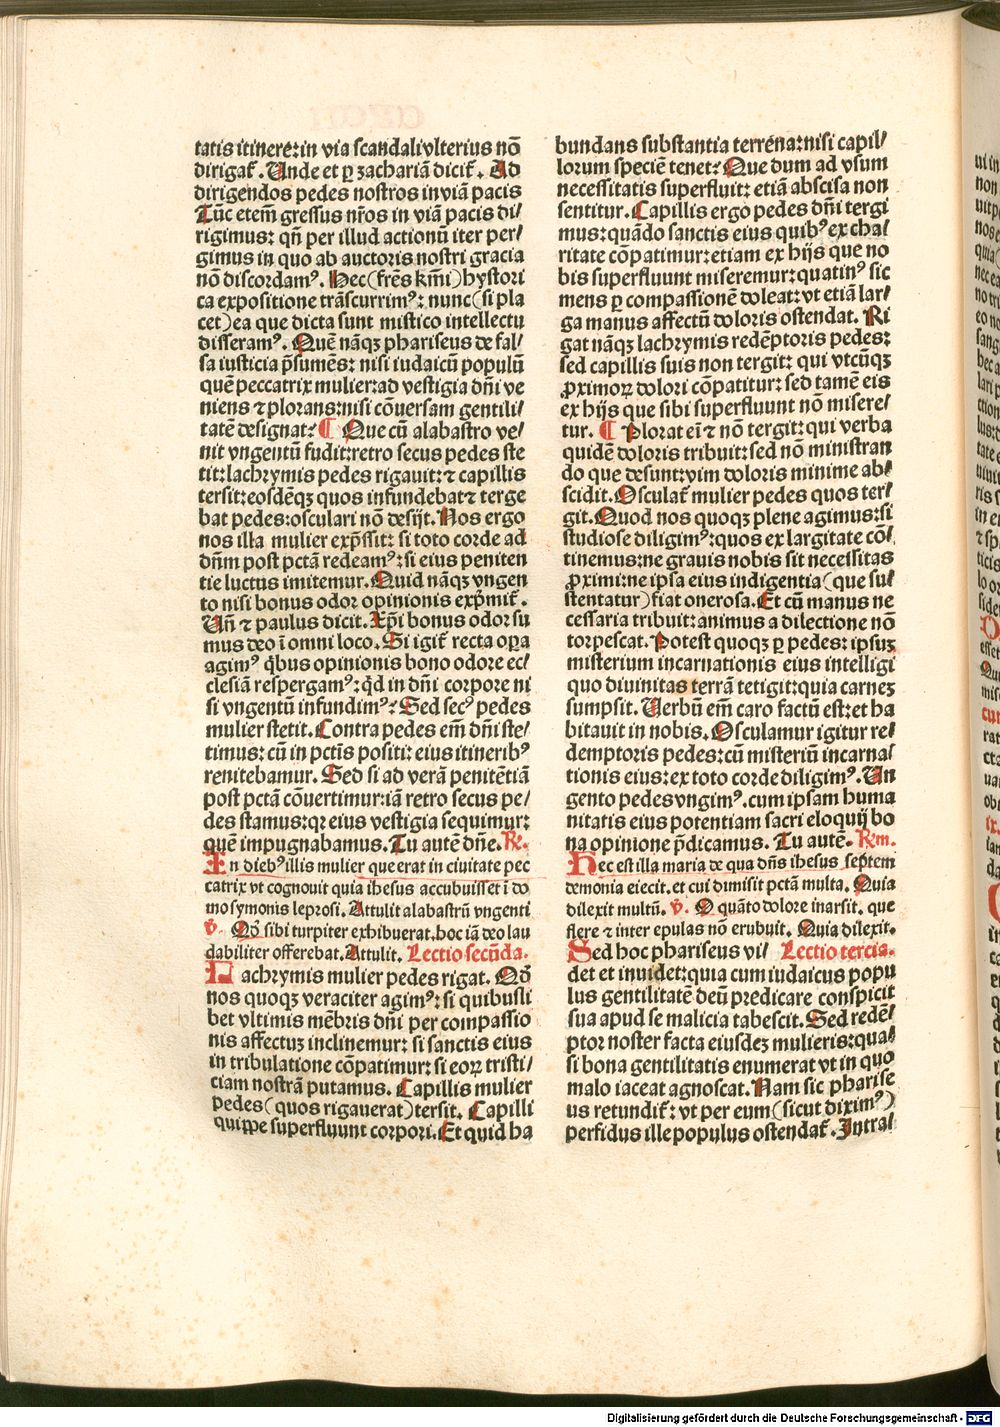 tatis itinere: in via scandali vlterius nō
dirigat᷒. Unde et ꝑ zachariā dicit᷒. Ad
dirigendos pedes nostros in viā pacis
Tūc etem̄ gressus nr̄os in viā pacis di/
rigimus: qn̄ per illud actionū iter per/
gimus in quo ab auctoris nostri gracia
nō discordamꝰ. Hec (fr̄es kr̄mi) hystori
ca expositione trāscurrimꝰ: nunc (si pla
cet) ea que dicta sunt mistico intellectu
disseramꝰ. Quē nāqꝫ phariseus de fal/
sa iusticia p̄sumēs: nisi iudaicū populū
quē peccatrix mulier: ad vestigia dn̄i ve
niens ⁊ plorans: nisi cōuersam gentili/
tatē designat: ¶ Que cū alabastro ve/
nit vngentū fudit: retro secus pedes ste
tit: lachrymis pedes rigauit: ⁊ capillis
tersit: eosdēqꝫ quos infundebat ⁊ terge
bat pedes: osculari nō desijt. Nos ergo
nos illa mulier exp̄ssit: si toto corde ad
dn̄m post pctā redeamꝰ: si eius peniten
tie luctus imitemur. Quid nāqꝫ vngen
to nisi bonus odor opinionis exp̄mit᷒.
Un̄ ⁊ paulus dicit. Xp̄i bonus odor su
mus deo ī omni loco. Si igit᷒ recta oꝑa
agimꝰ q̄bus opinionis bono odore ec/
clesiā respergamꝰ: qͥd in dn̄i corpore ni
si vngentū infundimꝰ: Sed secꝰ pedes
mulier stetit. Contra pedes em̄ dn̄i ste/
timus: cū in pctīs positi: eius itineribꝰ
renitebamur. Sed si ad verā penitētiā
post pctā cōuertimur: iā retro secus pe/
des stamus: qꝛ eius vestigia sequimur:
quē impugnabamus. Tu autē dn̄e. Rͤ.
In diebꝰ illis mulier que erat in ciuitate pec
catrix vt cognouit quia ihesus accubuisset ī do
mo symonis leprosi. Attulit alabastrū vngenti
v̄. Qd̄ sibi turpiter exhibuerat. hoc iā deo lau
dabiliter offerebat. Attulit. Lectio secūda.
Lachrymis mulier pedes rigat. Qd̄
nos quoqꝫ veraciter agimꝰ: si quibusli
bet vltimis mēbris dn̄i per compassio
nis affectuꝫ inclinemur: si sanctis eius
in tribulatione cōpatimur: si eoꝝ tristi/
ciam nostrā putamus. Capillis mulier
pedes (quos rigauerat) tersit. Capilli
quippe superfluunt corpori. Et quid ha
bundans substantia terrena: nisi capil/
lorum speciē tenet: Que dum ad vsum
necessitatis superfluit: etiā abscisa non
sentitur. Capillis ergo pedes dn̄i tergi
mus: quādo sanctis eius quibꝰ ex cha/
ritate cōpatimur: etiam ex hijs que no
bis superfluunt miseremur: quatinꝰ sic
mens ꝑ compassionē doleat: vt etiā lar/
ga manus affectū doloris ostendat. Ri
gat nāqꝫ lachrymis redēptoris pedes:
sed capillis suis non tergit: qui vtcūqꝫ
ꝓximoꝝ dolori cōpatitur: sed tamē eis
ex hijs que sibi superfluunt nō misere/
tur. ¶ Plorat eī ⁊ nō tergit: qui verba
quidē doloris tribuit: sed nō ministran
do que desunt: vim doloris minime ab/
scidit. Osculat᷒ mulier pedes quos ter/
git. Quod nos quoqꝫ plene agimus: si
studiose diligimꝰ: quos ex largitate cō/
tinemus: ne grauis nobis sit necessitas
ꝓximi: ne ipsa eius indigentia (que su/
stentatur) fiat onerosa. Et cū manus ne
cessaria tribuit: animus a dilectione nō
torpescat. Potest quoqꝫ ꝑ pedes: ipsuꝫ
misterium incarnationis eius intelligi
quo diuinitas terrā tetigit: quia carneꝫ
sumpsit. Uerbū em̄ caro factū est: et ha
bitauit in nobis. Osculamur igitur re/
demptoris pedes: cū misteriū incarna/
tionis eius: ex toto corde diligimꝰ. Un
gento pedes vngimꝰ. cum ipsam huma
nitatis eius potentiam sacri eloquij bo
na opinione p̄dicamus. Tu autē. Rͤm.
Hec est illa maria de qua dn̄s ihesus septem
demonia eiecit. et cui dimisit pctā multa. Quia
dilexit multū. v̄. O quāto dolore inarsit. que
flere ⁊ inter epulas nō erubuit. Quia dilexit.
Sed hoc phariseus vi/ Lectio tercia.
det et inuidet: quia cum iudaicus popu
lus gentilitatē deū predicare conspicit
sua apud se malicia tabescit. Sed redē/
ptor noster facta eiusdeꝫ mulieris: qua/
si bona gentilitatis enumerat vt in quo
malo iaceat agnoscat. Nam sic pharise
us retundit᷒: vt per eum (sicut diximꝰ)
perfidus ille populus ostendat᷒. Intra/
Digitalisierung gefördert durch die Deutsche Forschungsgemeinschaft - DFG